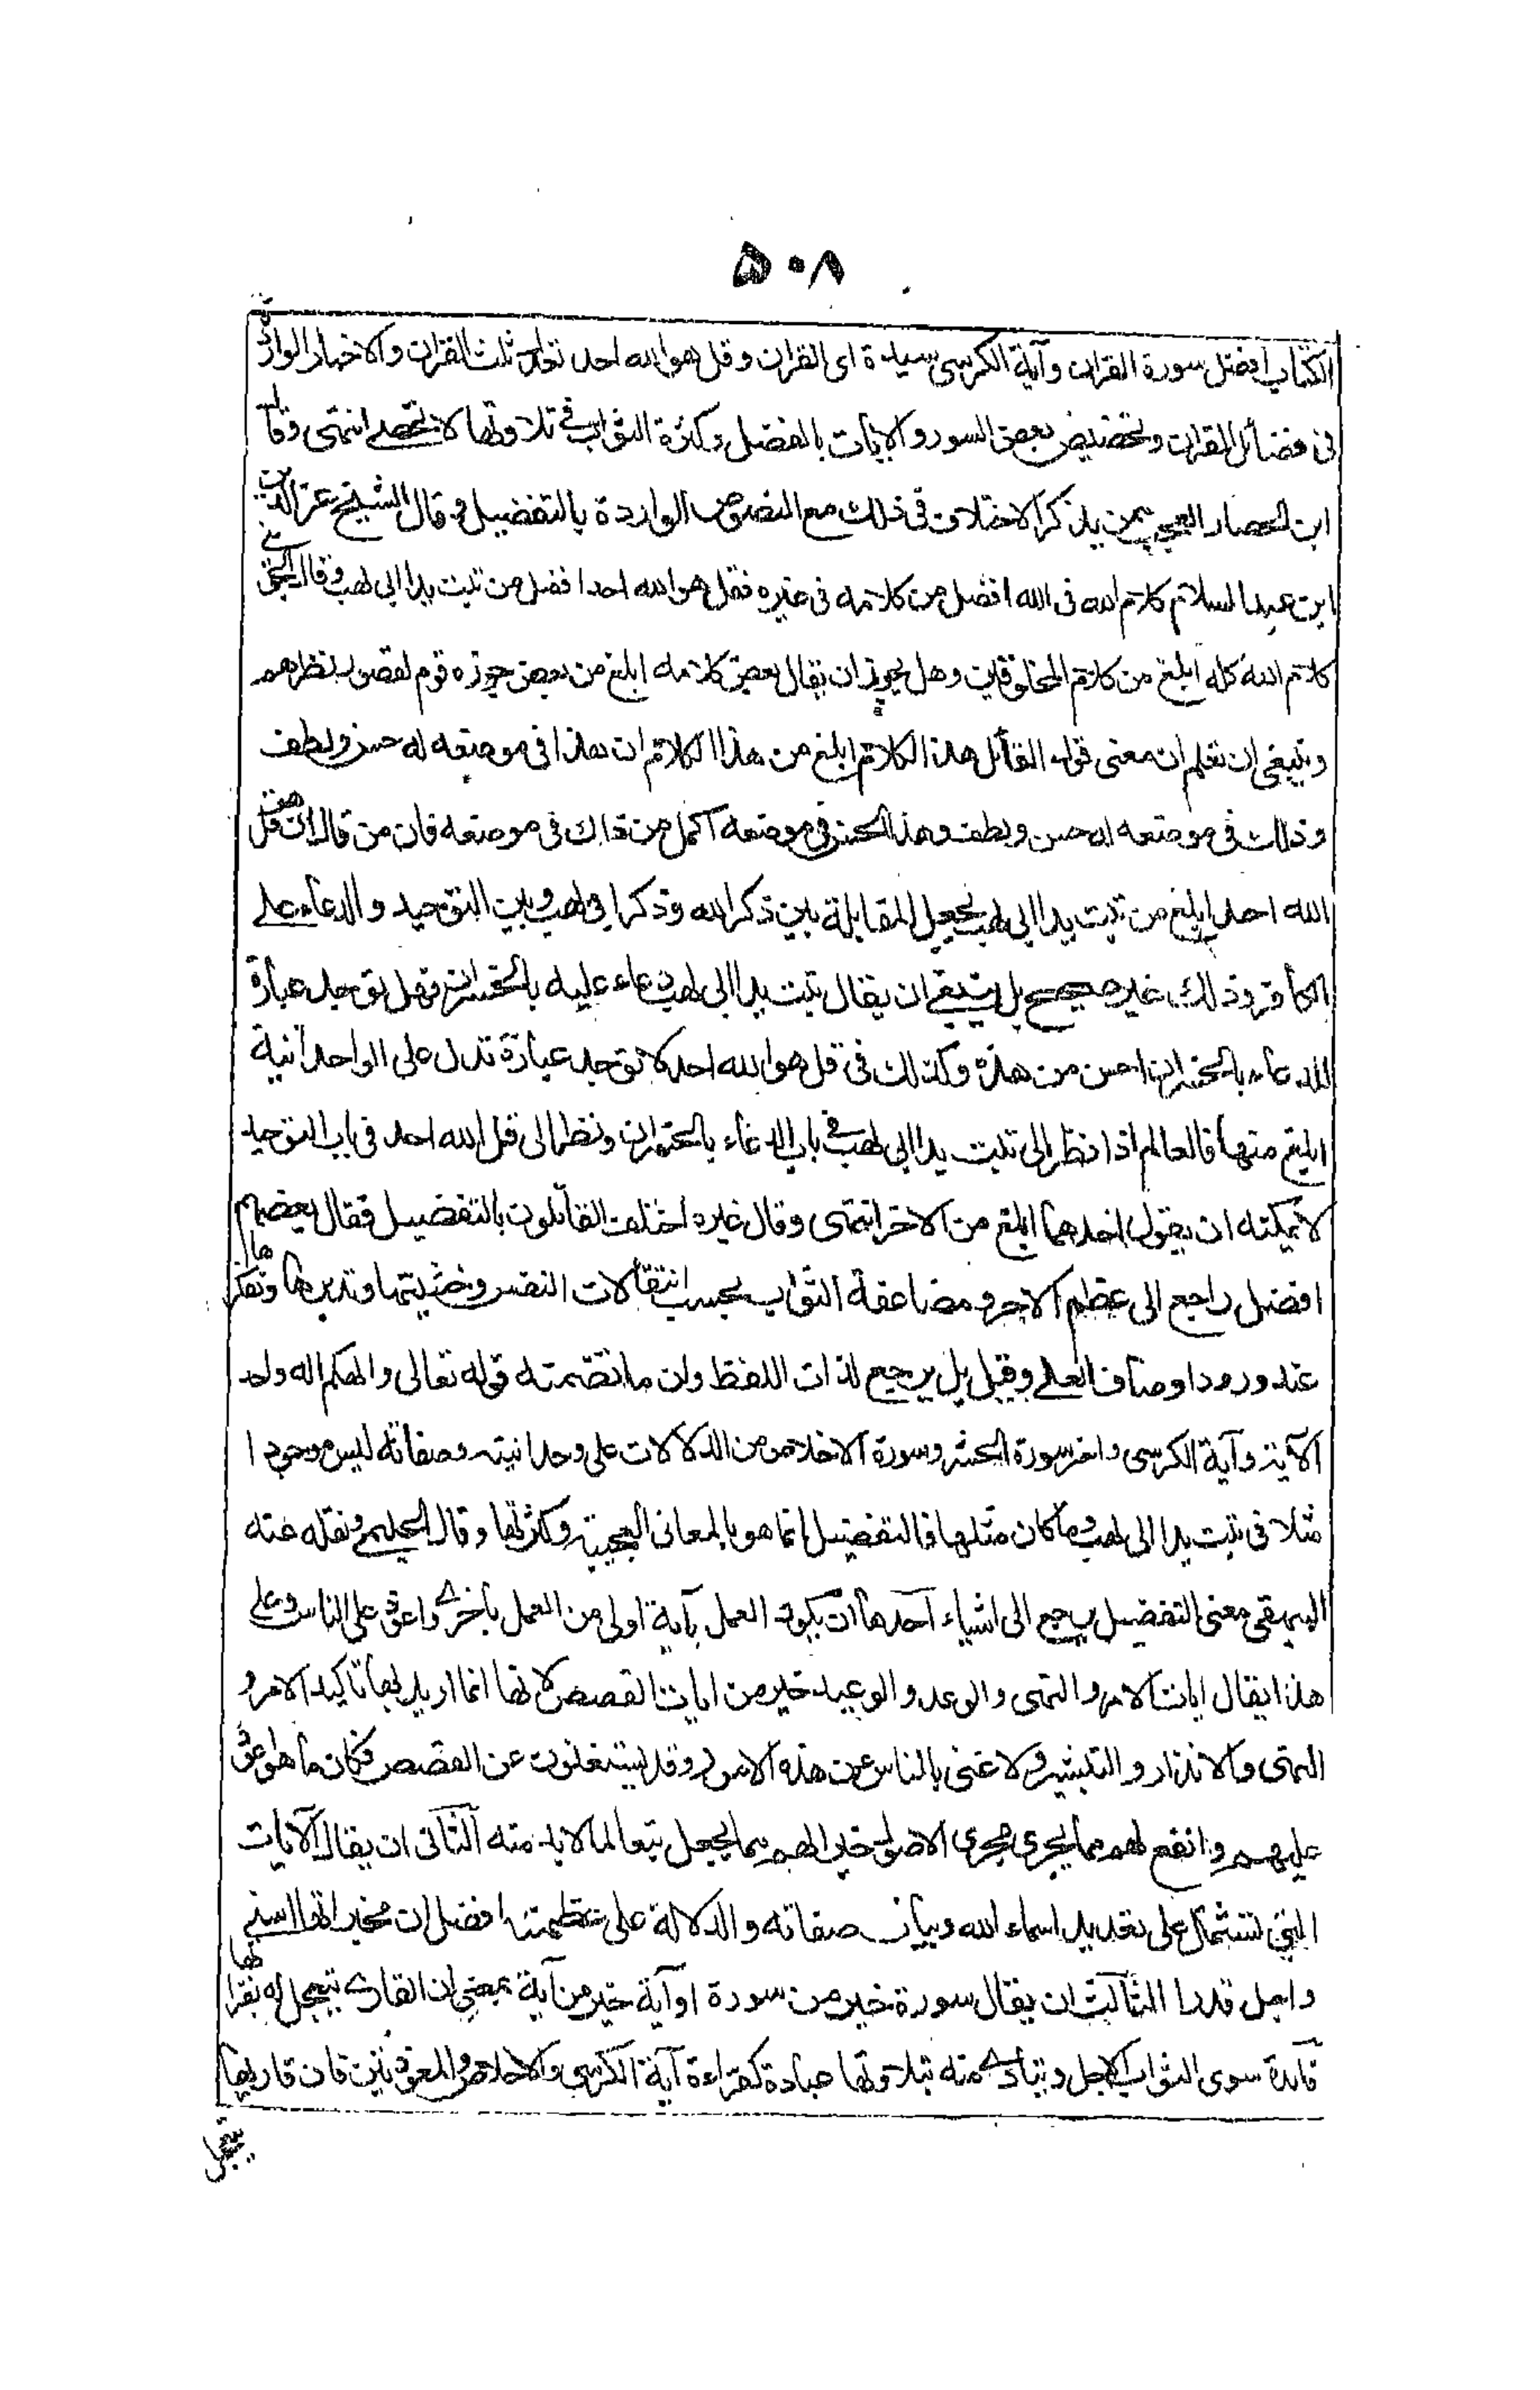 ۵۰۸
الكتاب افضل سورة القران وآية الكرسى سيدة اى القران وقل هو الله احد تعدل ثلث القران والاخبار الواردة
فى فضائل القران وتخصيص بعض السور والايات بالفضل وكثرة الثواب فى تلاوتها لا تحصے انتهى وقال
ابن الحصار العجب ممن يذكر الاختلاف فى ذلك مع النصوص الواردة بالتفضيل وقال الشيخ عز الدين
ابن عبد السلام كلام الله فى الله افضل من كلامه فى غيره فقل هو الله احد افضل من تبت يدا ابى لهب وقال الخجوى
كلام الله كله ابلغ من كلام المخلوقين وهل يجوز ان يقال بعض كلامه ابلغ من بعض جوزه قوم لقصور نظرهم
وينبغى ان تعلم ان معنى قول القائل هذا الكلام ابلغ من هذا الكلام ان هذا فى موضعه له حسن ولطف
وذلك فى موضعه له حسن ولطف وهذا الحسن فى موضعه اكمل من ذاك فى موضعه فان من قال ان قل هو
الله احد ابلغ من تبت يدا ابى لهب يجعل المقابلة بين ذكر الله وذكر ابى لهب وبين التوحيد والدعاء على
الكافر وذلك غير صحيح بل ينبغے ان يقال تبت يدا ابى لهب دعاء عليه بالخسران فهل توجد عبارة
للدعاء بالخسران احسن من هذه وكذلك فى قل هو الله احد لا توجد عبارة تدل على الواحدانية
ابلغ منها فالعالم اذا نظر الى تبت يدا ابى لهب فى باب الدعاء بالخسران ونظر الى قل الله احد فى باب التوحيد
لا يمكنه ان يقول احدهما ابلغ من الاخر انتهى وقال غيره اختلف القائلون بالتفضيل فقال بعضهم
افضل راجع الى عظم الاجر ومضاعفة الثواب بحسب انتقالات النفس وخشيتها وتدبرها وتفكرها
عند ورود اوصاف العلے وقيل بل يرجع لذات اللفظ وان ما تضمنه قوله تعالى والهكم اله واحد
الآية وآية الكرسى واخر سورة الحشر وسورة الاخلاص من الدلالات على وحدانيته وصفاته ليس موجودا
مثلا فى تبت يدا ابى لهب وما كان مثلها فالتفضيل انما هو بالمعانى العجيبة وكثرتها وقال الحليمى ونقله عنه
البيهقى معنى التفضيل يرجع الى اشياء احدها ان يكون العمل بآية اولى من العمل باخرے واعود على الناس وعلى
هذا يقال ايات الامر والنهى والوعد والوعيد خير من ايات القصص لانها انما اريد بها تاكيد الامر و
النهى والانذار والتبشير ولا غنى بالناس عن هذه الامور وقد يستغنون عن القصص فكان ما هو اعود
عليهم وانفع لهم مما يجرى مجرى الاصول خيرا لهم مما يجعل تبعا لما لابد منه الثانى ان يقال الآيات
التى تشتمل على تعديد اسماء الله وبيان صفاته والدلالة على عظمته افضل ان مخبراتها اسنى
واجل قدرا الثالث ان يقال سورة خير من سورة او آية خير من آية بمعنى ان القارے يتعجل له بقراءتها
فائدة سوى الثواب الاجل ويتادے منه بتلاوتها عبادة كقراءة آية الكرسى والاخلاص والمعوذتين فان قاريها
يتعجل